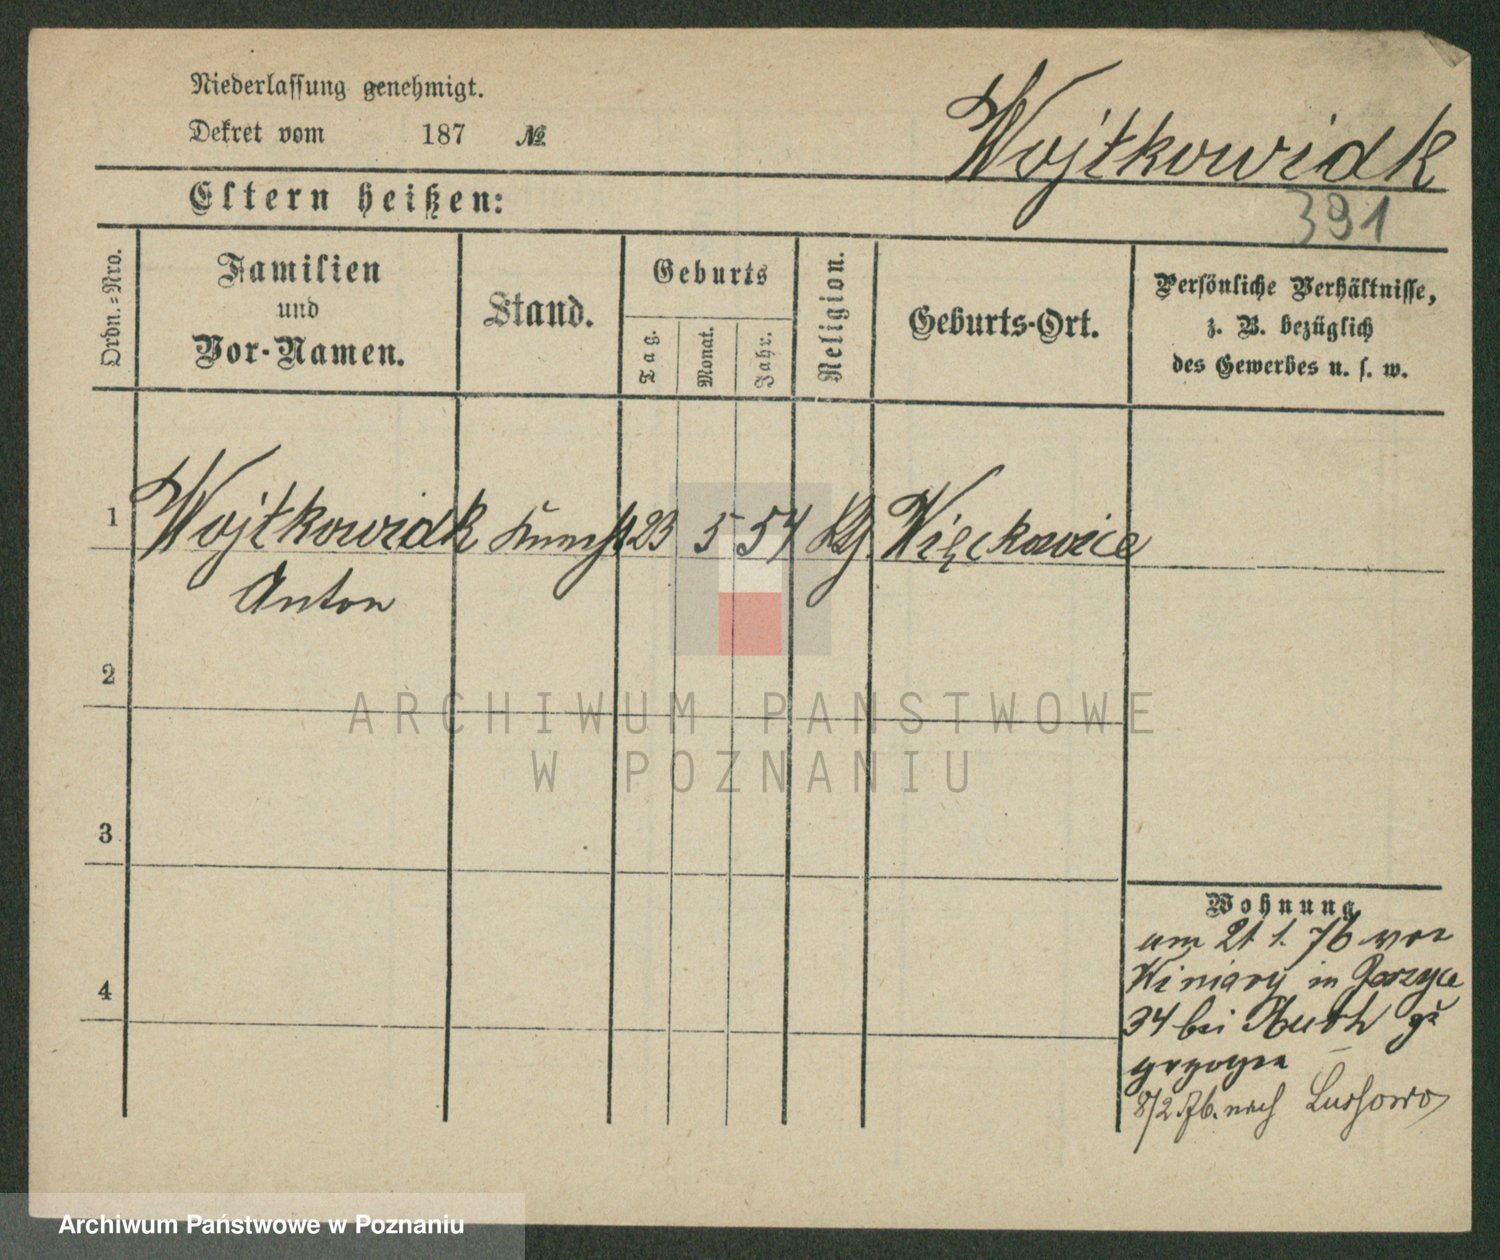 Niederlassung genehmigt.
Dekret vom 187 №
Wojtkowiak
391
Eltern heißen:
Ordn.=Nro.
Familien
und
Vor-Namen.
Stand.
Geburts
Tag.
Monat.
Jahr.
Religion.
Geburts-Ort.
Persönliche Verhältnisse,
z. B. bezüglich
des Gewerbes u. s. w.
1 Wojtkowiak Knecht 23 5 54 Kth. Więckowice
Anton
2
3
4
Wohnung
am 21 1. 76 von
Winiary in
34 bei zu
gezogen
8/2 76. nach Lussowo
ARCHIWUM PAŃSTWOWE
W POZNANIU
Archiwum Państwowe w Poznaniu